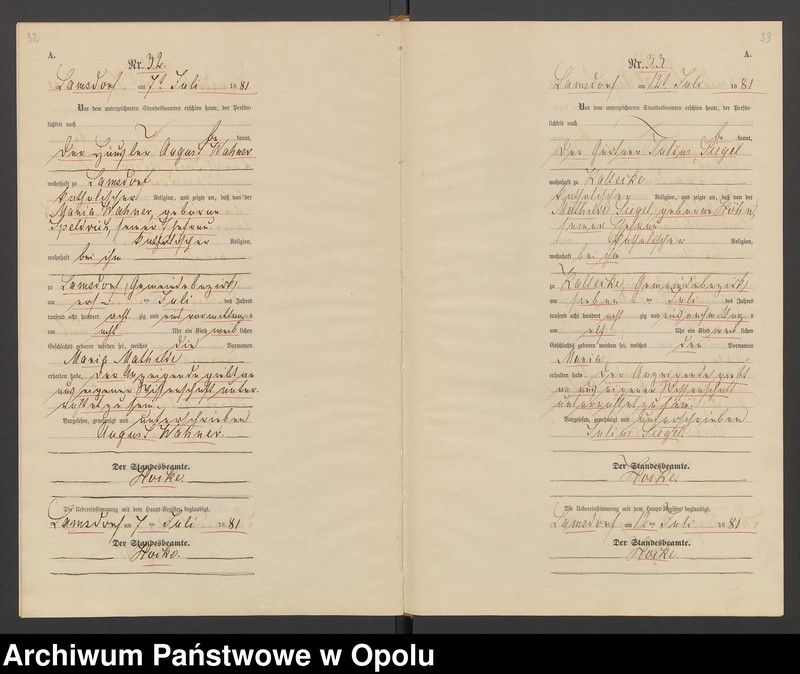 32
A.
Nr. 32.
Lamsdorf am 7ten Juli 1881
Vor dem unterzeichneten Standesbeamten erschien heute, der Persön-
lichkeit nach
be kannt,
der Häusler August Wahner
wohnhaft zu Lamsdorf
katholischer Religion, und zeigte an, daß von der
Maria Wahner, geborne
seiner Ehefrau
katholischer Religion,
wohnhaft bei ihm
zu Lamsdorf, Gemeindebezirk,
am ersten Juli des Jahres
tausend acht hundert acht zig und eins vormittags
um acht Uhr ein Kind weib lichen
Geschlechts geboren worden sei, welches die Vornamen
Maria Mathilde
erhalten habe. Der Anzeigende giebt an
aus eigener Wissenschaft unter-
richtet zu sein.
Vorgelesen, genehmigt und unterschrieben
August Wahner.
Der Standesbeamte.
Die Uebereinstimmung mit dem Haupt-Register beglaubigt.
Lamsdorf am 7 ten Juli 1881
Der Standesbeamte.
33
A.
Nr. 33.
Lamsdorf am 12ten Juli 1881
Vor dem unterzeichneten Standesbeamten erschien heute, der Persön-
lichkeit nach
be kannt,
der Gärtner Julius Siegel
wohnhaft zu
katholischer Religion, und zeigte an, daß von der
Mathilde Siegel, geborne
seiner Ehefrau
katholischer Religion,
wohnhaft bei ihm
zu Gemeindebezirk,
am sieben ten Juli des Jahres
tausend acht hundert acht zig und eins nachmittags
um elf Uhr ein Kind weib lichen
Geschlechts geboren worden sei, welches den Vornamen
Maria
erhalten habe. Der Anzeigende giebt
an aus eigener Wissenschaft
unterrichtet zu sein.
Vorgelesen, genehmigt und unterschrieben
Julius Siegel.
Der Standesbeamte.
Die Uebereinstimmung mit dem Haupt-Register beglaubigt.
Lamsdorf am 12 ten Juli 1881
Der Standesbeamte.
Archiwum Państwowe w Opolu